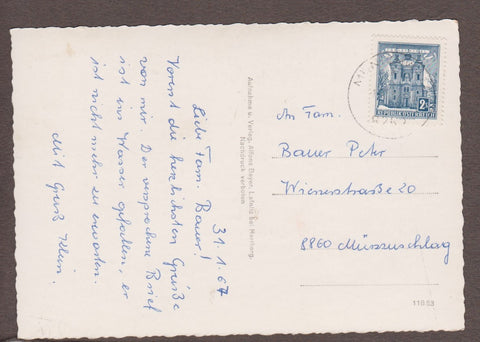 31.1.67
Liebe Fam. Bauer!
Vorerst die herzlichsten Grüße
von mir. Der versprochene Brief
ist ins Wasser gefallen, er
ist nicht mehr zu erwarten.
Mit Gruß Klein.
Aufnahme u. Verlag: Alfons Bayer, Lafnitz bei Hartberg.
Nachdruck verboten
2S
REPUBLIK ÖSTERREICH
An Fam.
Bauer Peter
Wienerstraße 20
8860 Mürzzuschlag
11653